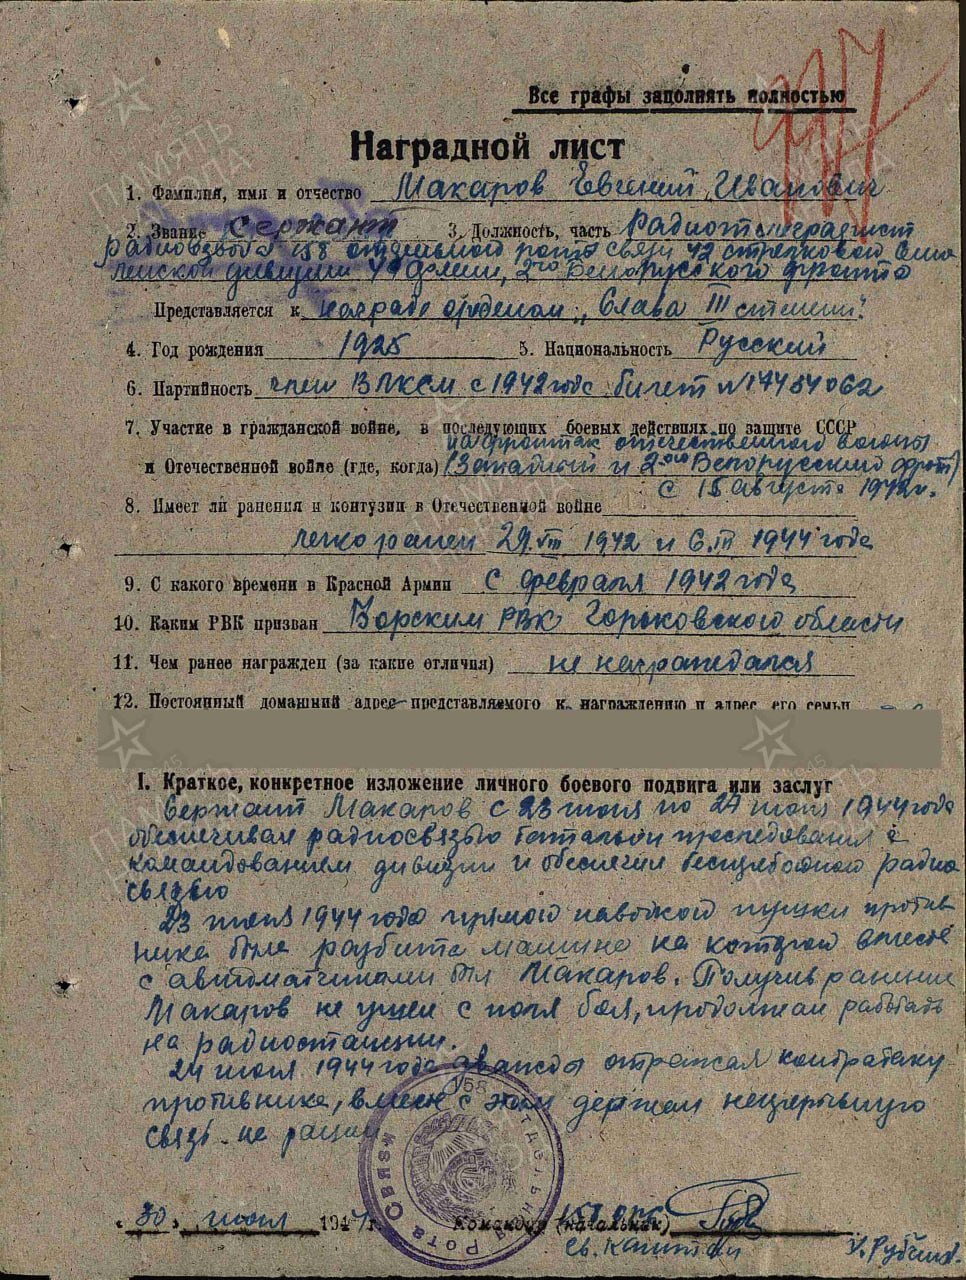 Все графы заполнять полностью
Наградной лист
1. Фамилия, имя и отчество Макаров Евгений Иванович
2. Звание Сержант 3. Должность, часть Радиотелеграфист
радиовзвода 158 отдельной роты связи 42 стрелковой Смо
ленской дивизии 49 Армии, 2го Белорусского фронта
Представляется к награде орденом „Слава III степени".
4. Год рождения 1925 5. Национальность Русский
6. Партийность член ВЛКСМ с 1942 года билет №17454062
7. Участие в гражданской войне, в последующих боевых действиях по защите СССР
на фронтах отечественной войны
и Отечественной войне (где, когда) (Западный и 2-ой Белорусский фронт)
с 15 августа 1942г.
8. Имеет ли ранения и контузии в Отечественной войне
легко ранен 29.VIII 1942 и 6.III 1944 года
9. С какого времени в Красной Армии с февраля 1942 года
10. Каким РВК призван Борским РВК Горьковской области
11. Чем ранее награжден (за какие отличия) не награждался
12. Постоянный домашний адрес представляемого к награждению и адрес его семьи
I. Краткое, конкретное изложение личного боевого подвига или заслуг
Сержант Макаров с 23 июня по 27 июня 1944 года
обеспечивал радиосвязью батальон преследования с
командованием дивизии и обеспечил бесперебойной радио
связью
23 июня 1944 года прямой наводкой пушки против
ника была разбита машина на которой вместе
с автоматчиками был Макаров. Получив ранение
Макаров не ушел с поля боя, продолжал работать
на радиостанции.
24 июня 1944 года дважды отражал контратаку
противника, вместе с этим держал непрерывную
связь по рации
158 Отдельная Рота Связи
„30" июня 1944 г. Командир (начальник) 158 ОРС
Гв. Капитан